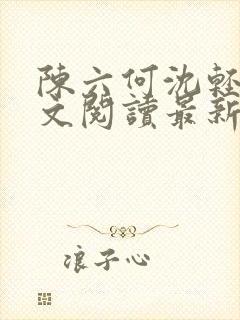 陳六何沈輕
文閱讀最新
浪子心